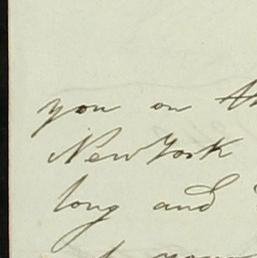 you on th
New York
long and